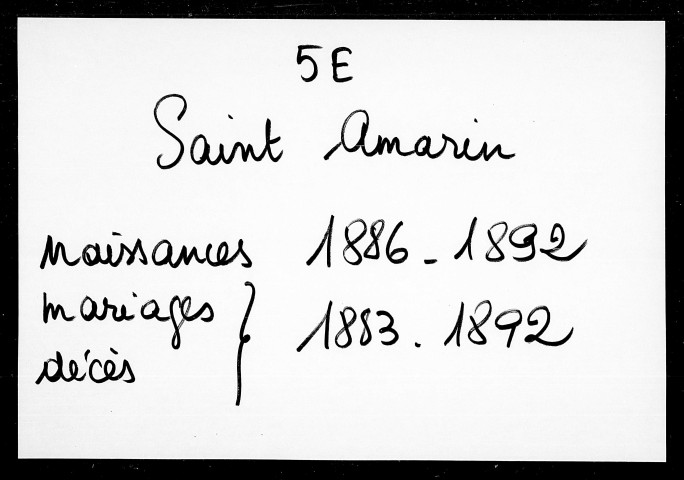 5E
Saint Amarin
naissances 1886 - 1892
mariages } 1883 . 1892
décès